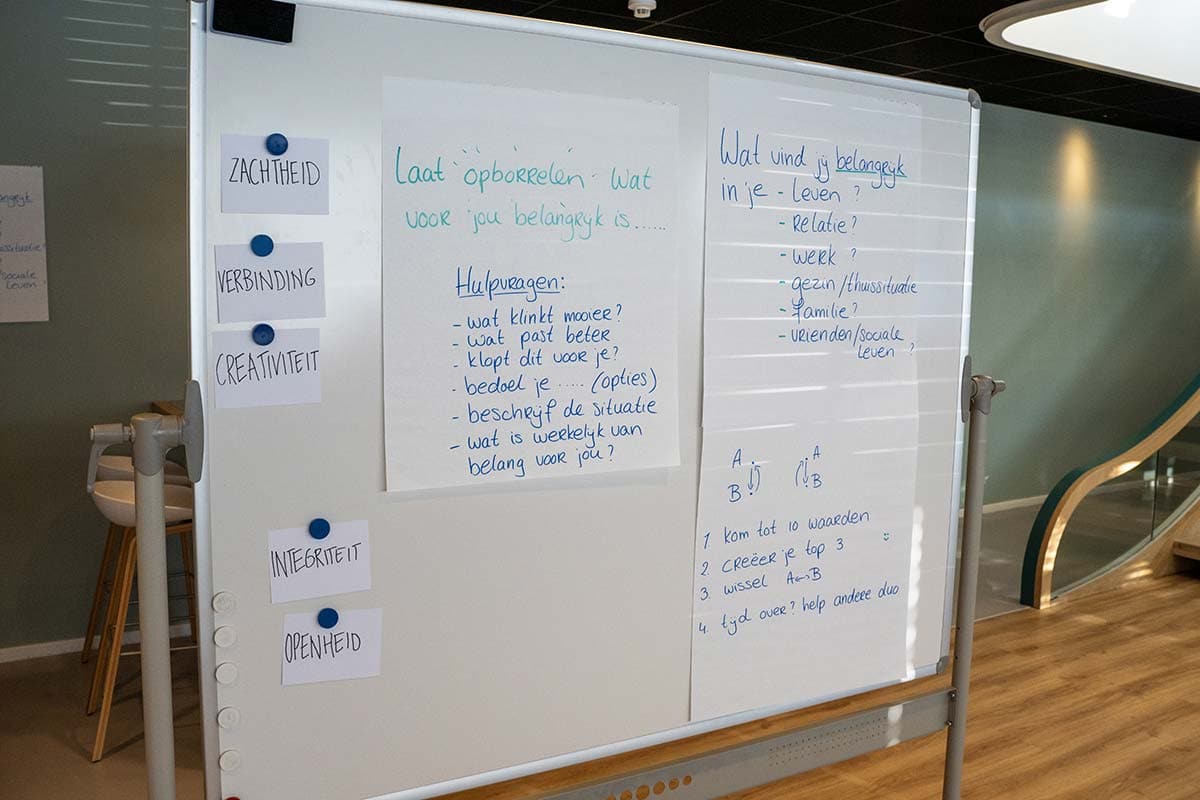 ZACHTHEID
VERBINDING
CREATIVITEIT
INTEGRITEIT
OPENHEID
Laat "opborrelen" wat
voor jou belangrijk is......
Hulpvragen:
- wat klinkt mooier?
- wat past beter
- klopt dit voor je?
- bedoel je ..... (opties)
- beschrijf de situatie
- wat is werkelijk van
belang voor jou?
Wat vind jij belangrijk
in je - Leven ?
- Relatie?
- werk ?
- gezin/thuissituatie
- familie?
- vrienden/sociale
leven ?
A A
B B
1. kom tot 10 waarden
2. creëer je top 3 :)
3. wissel A↔B
4. tijd over? help andere duo
sociale
leven